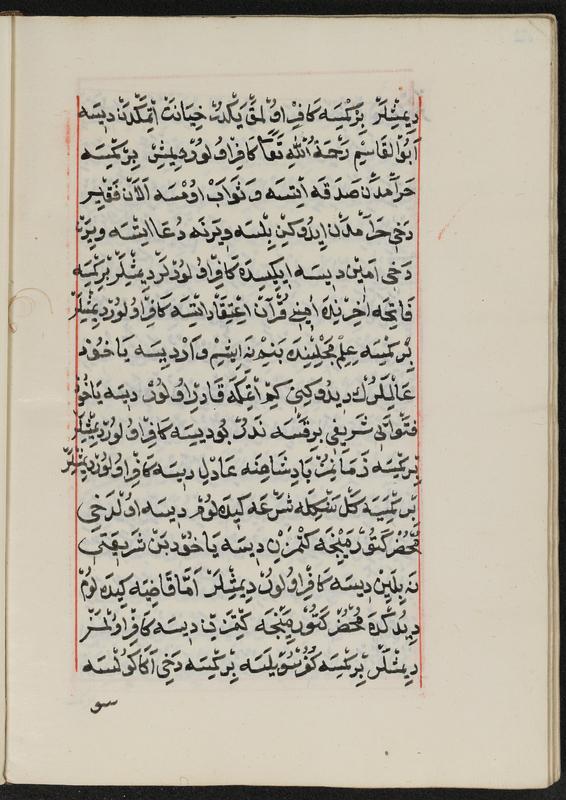 دِيمِشْلَرْ بِرْ كِمْسَه كَافِرْ اوُلمَقْ يَكْدُرْ خِيَانَتْ اِتْمَكْدَنْ دِيسَه
اَبُوْالقَاسِمْ رَحْمَةُ اللّٰهِ تَعَا كَافِرْ اوُلوُرْ دِيمِشْ بِرْ كِمْسَه
حَرَامْدَنْ صَدَقَه اِتْسَه وَ ثَوَابْ اوُمْسَه اَلَانْ فَقِيرْ
دَخِي حَرَامْدَنْ اِيدُوكِنْ بِلْسَه وِيرَنَه دُعَا اِتْسَه وِيرَنْ
دَخِي اٰمِينْ دِيسَه اِيكِيسِدَه كَافِرْ اوُلوُرْلَرْ دِيمِشْلَرْ بِرْ كِمْسَه
فَاتِحَه اٰخِرِنْدَه اٰمِينِي قُرْاٰنْ اِعْتِقَادْ اِتْسَه كَافِرْ اوُلوُرْ دِيمِشْلَرْ
بِرْ كِمْسَه عِلِمْ مَجْلِسِنْدَه بَنِمْ نَه اِيشِمْ وَارْ دِيسَه يَاخُودْ
عَالِمْلَرُكْ دِيدُوكِنِي كِمْ اِتْمَكَه قَادِرْ اوُلوُرْ دِيسَه يَاخُودْ
فَتْوَاىِٔ شَرِيفِي بِرَقْسَه نَدُرْ بُو دِيسَه كَافِرْ اوُلوُرْ دِيمِشْلَرْ
بِرْ كِمْسَه زَمَانَه نُكْ پَادِشَاهِنَه عَادِلْ دِيسَه كَافِرْ اوُلوُرْ دِيمِشْلَرْ
بِرْ كِمْسَيَه كَلْ بَنِكْلَه شَرْعَه كِيدَه لُومْ دِيسَه اوُلْدَخِي
مُحْضِرْ كَتُورْمَيِنْجَه كِتْمَزِنْ دِيسَه يَاخُودْ بَنْ شَرِيعَتِي
نَه بِلَيِنْ دِيسَه كَافِرْ اوُلوُرْ دِيمِشْلَرْ اَمَّا قَاضِيَه كِيدَه لُومْ
دِيدُكْدَه مُحْضِرْ كَتُورْمَيِنْجَه كِتْمَزِنْ دِيسَه كَافِرْ اوُلْمَزْ
دِيمِشْلَرْ بِرْ كِمْسَه كُفُرْ سُويْلَسَه بِرْ كِمْسَه دَخِي اَكَا كُولْسَه
سو